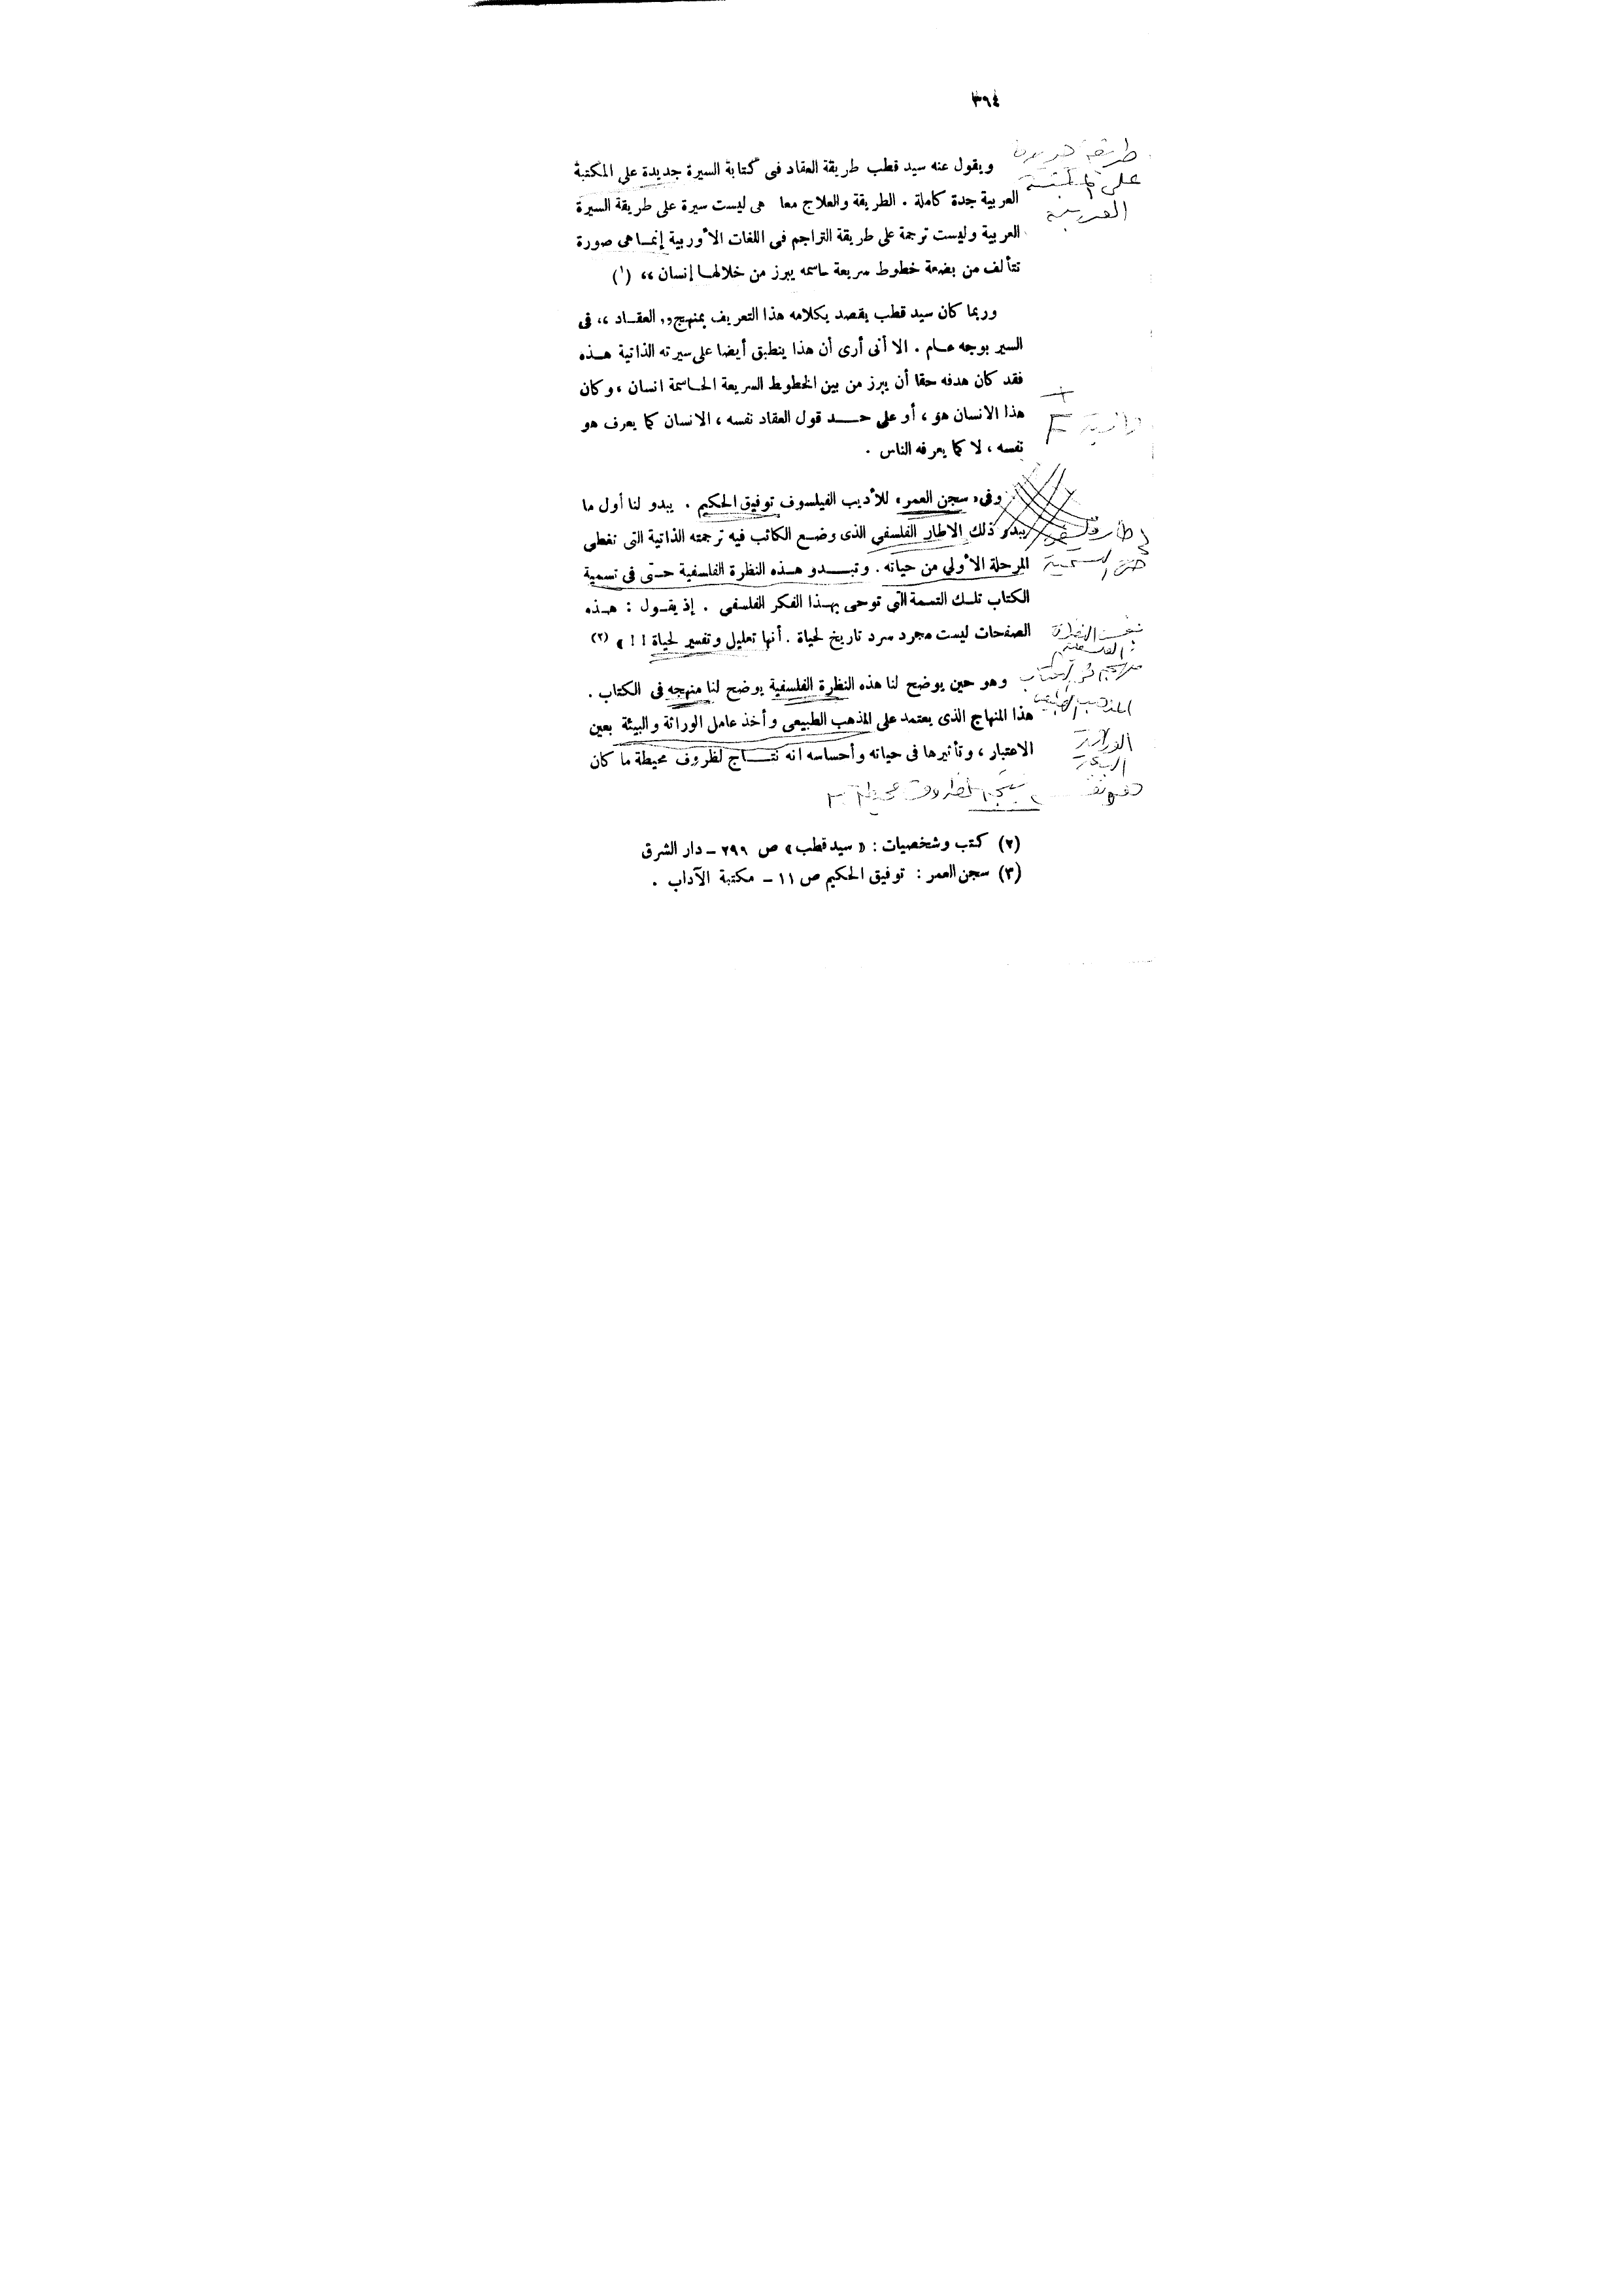 ٣٩٤
ويقول عنه سيد قطب طريقة العقاد فى كتابة السيرة جديدة على المكتبة
العربية جدة كاملة . الطريقة والعلاج معا هى ليست سيرة على طريقة السيرة
العربية وليست ترجمة على طريقة التراجم فى اللغات الأوربية إنما هى صورة
تتألف من بضعة خطوط سريعة حاسمه يبرز من خلالها إنسان ،، (١)
وربما كان سيد قطب يقصد بكلامه هذا التعريف بمنهج ,, العقاد ،، فى
السير بوجه عام . الا أنى أرى أن هذا ينطبق أيضا على سيرته الذاتية هذه
فقد كان هدفه حقا أن يبرز من بين الخطوط السريعة الحاسمة انسان ، وكان
هذا الانسان هو ، أو على حد قول العقاد نفسه ، الانسان كما يعرف هو
نفسه ، لا كما يعرفه الناس .
وفى « سجن العمر » للأديب الفيلسوف توفيق الحكيم . يبدو لنا أول ما
يبدو ذلك الاطار الفلسفي الذى وضع الكاتب فيه ترجمته الذاتية التى تغطى
المرحلة الأولي من حياته . وتبدو هذه النظرة الفلسفية حتى فى تسمية
الكتاب تلك التسمة التى توحى بهذا الفكر الفلسفى . إذ يقول : هذه
الصفحات ليست مجرد سرد تاريخ لحياة . أنها تعليل وتفسير لحياة ! ! » (٢)
وهو حين يوضح لنا هذه النظرة الفلسفية يوضح لنا منهجه فى الكتاب .
هذا المنهاج الذى يعتمد على المذهب الطبيعى وأخذ عامل الوراثة والبيئة بعين
الاعتبار ، وتأثيرها فى حياته وأحساسه انه نتاج لظروف محيطة ما كان
(٢) كتب وشخصيات : « سيد قطب » ص ٢٩٩ – دار الشرق
(٣) سجن العمر : توفيق الحكيم ص ١١ – مكتبة الآداب .
على المكتبة
العربية